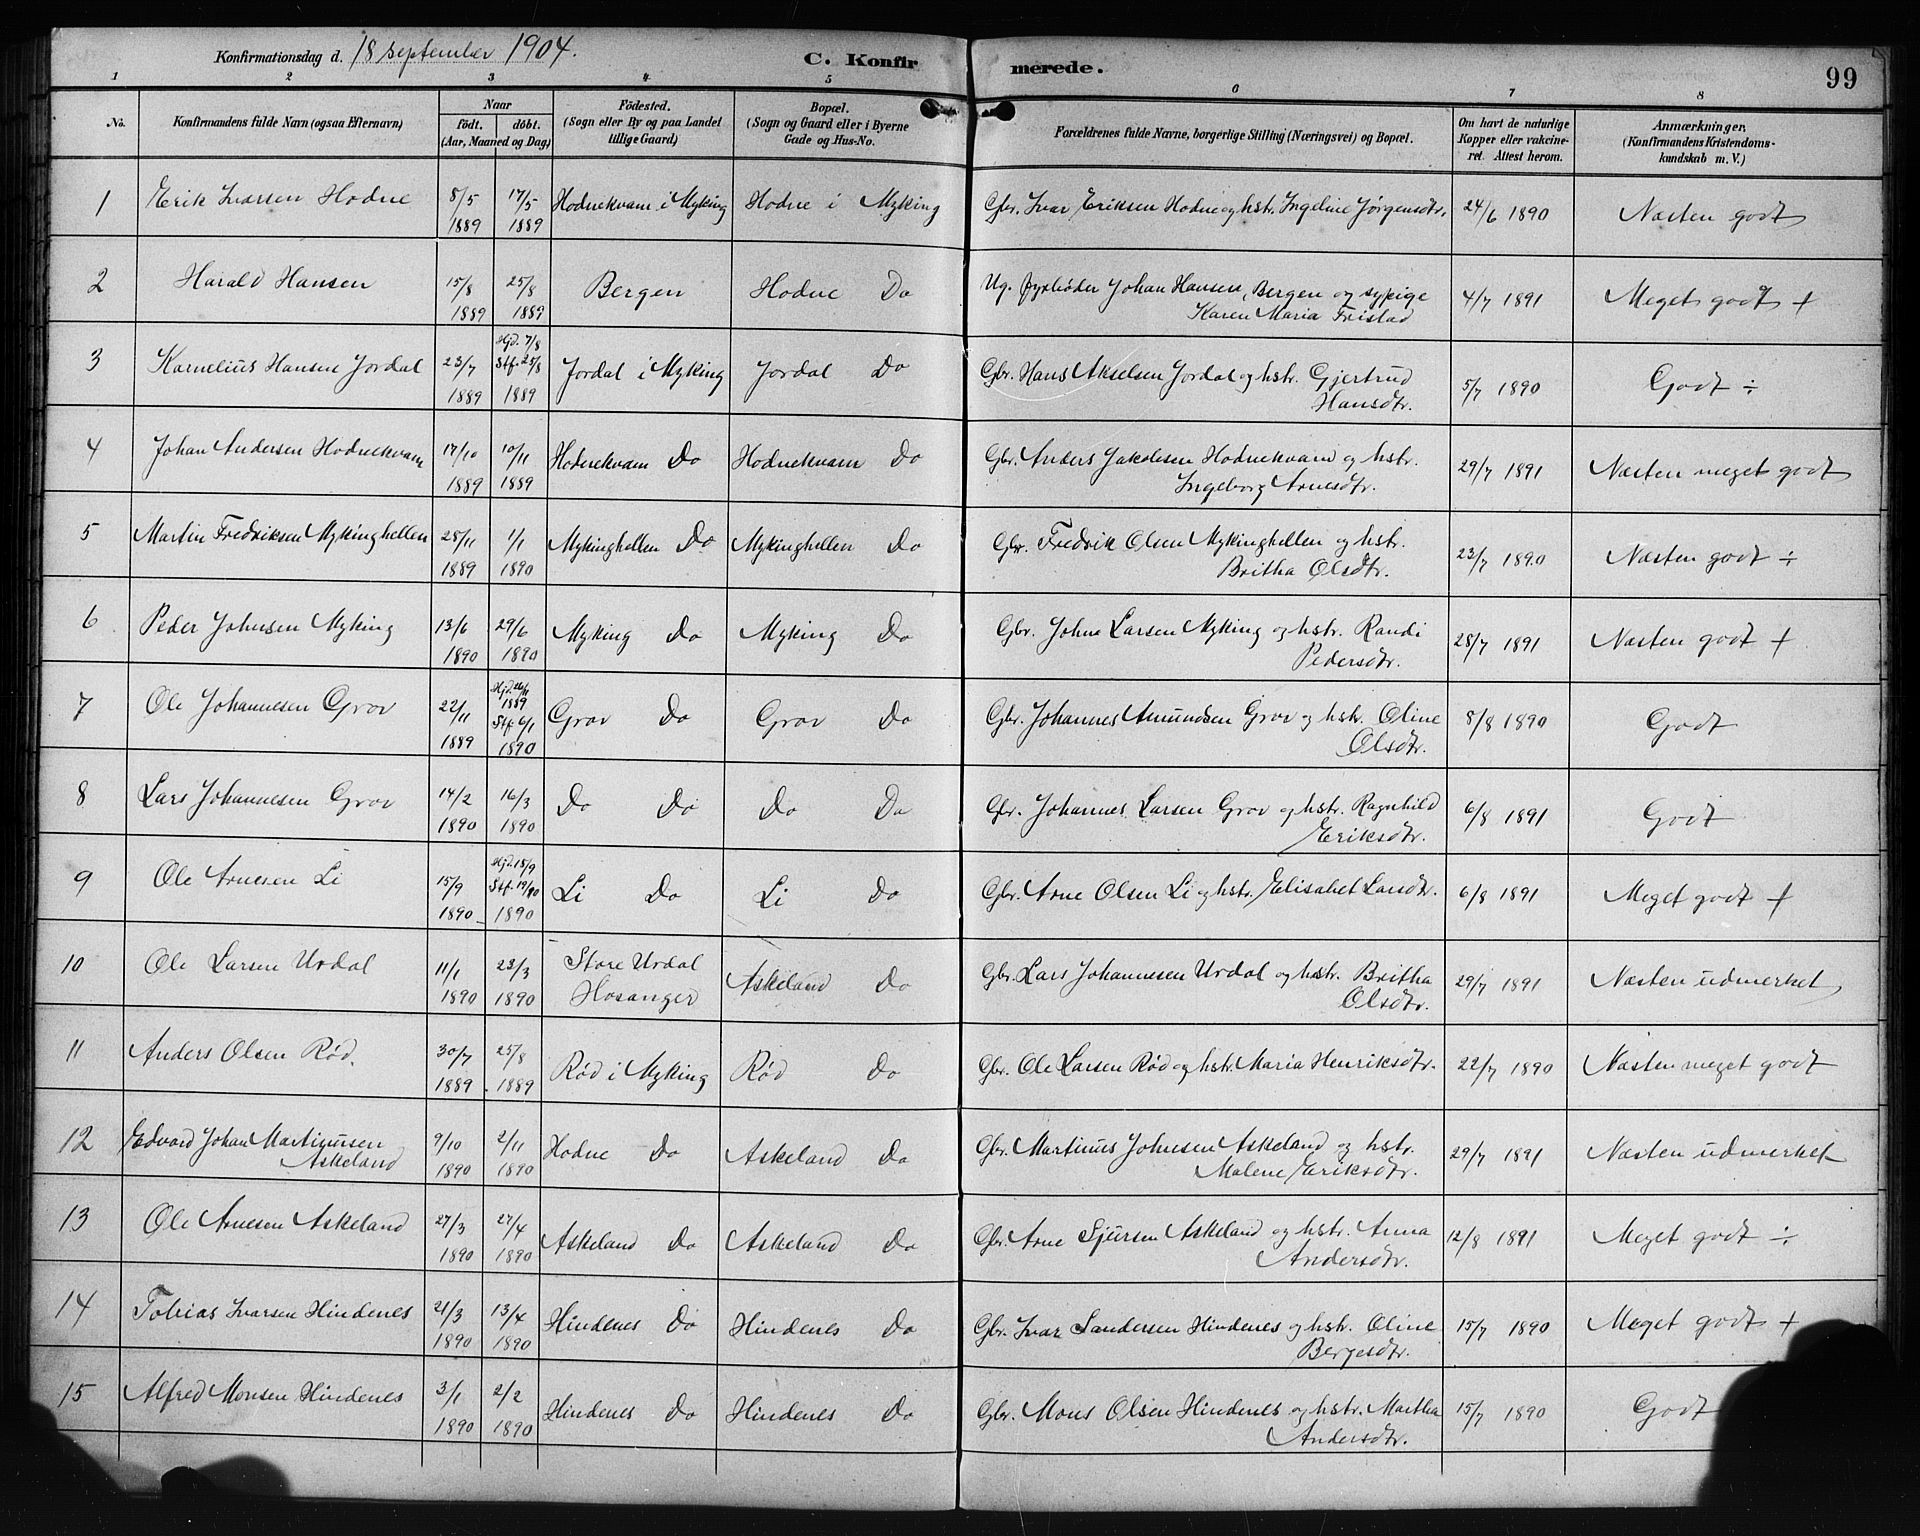 Konfirmationsdag d. 18 september 1904.
C. Konfirmerede.
99
1 2 3 4 5 6 7 8
No.
Konfirmandens fulde Navn (ogsaa Efternavn)
Naar
födt. döbt.
(Aar, Maaned og Dag)
Födested.
(Sogn eller By og paa Landet tillige Gaard)
Bopæl.
(Sogn og Gaard eller i Byerne Gade og Hus-No.
Forældrenes fulde Navne, borgerlige Stilling (Næringsvei) og Bopæl.
Om havt de naturlige Kopper eller vakcineret. Attest herom.
Anmærkninger.
(Konfirmandens Kristendomskundskab m. V.)
1 Erik Ivarsen Hodne 8/5 1889 17/5 1889 Hodnekvam i Myking Hodne i Myking Gbr. Ivar Eriksen Hodne og hstr. Ingeline Jørgensdtr. 24/6 1890 Næsten godt
2 Harald Hansen 15/8 1889 25/8 1889 Bergen Hodne Do Ug. Fyrbøder Johan Hansen, Bergen og sypige
Karen Maria Fristad 4/7 1891 Meget godt +
3 Kornelius Hansen Jordal 23/7 1889 Hjd. 7/8 Stf. 25/8 1889 Jordal i Myking Jordal Do Gbr. Hans Akselsen Jordal og hstr. Gjertrud
Hansdtr. 5/7 1890 Godt ÷
4 Johan Andersen Hodnekvam 17/10 1889 10/11 1889 Hodnekvam Do Hodnekvam Do Gbr. Anders Jakobsen Hodnekvam og hstr.
Ingeborg Arnesdtr. 29/7 1891 Næsten meget godt
5 Martin Fredriksen Mykinghellen 28/11 1889 1/1 1890 Mykinghellen Do Mykinghellen Do Gbr. Fredrik Olsen Mykinghellen og hstr.
Britha Olsdtr. 23/7 1890 Næsten godt ÷
6 Peder Johnsen Myking 13/6 1890 29/6 1890 Myking Do Myking Do Gbr. Johne Larsen Myking og hstr. Randi
Pedersdtr. 28/7 1891 Næsten godt +
7 Ole Johannesen Grov 22/11 1889 Hjd. 26/11 1889 Stf. 6/1 1890 Grov Do Grov Do Gbr. Johannes Amundsen Grov og hstr. Oline
Olsdtr. 8/8 1890 Godt
8 Lars Johannesen Grov 14/2 1890 16/3 1890 Do Do Do Do Gbr. Johannes Larsen Grov og hstr. Ragnhild
Eriksdtr. 6/8 1891 Godt
9 Ole Arnesen Li 15/9 1890 Hjd. 15/9 Stf. 19/10 1890 Li Do Li Do Gbr. Arne Olsen Li og hstr. Elisabet Larsdtr. 6/8 1891 Meget godt +
10 Ole Larsen Urdal 11/1 1890 23/3 1890 Store Urdal
Hosanger Askeland Do Gbr. Lars Johannesen Urdal og hstr. Britha
Olsdtr. 29/7 1891 Næsten udmerket
11 Anders Olsen Rød 30/7 1889 25/8 1889 Rød i Myking Rød Do Gbr. Ole Larsen Rød og hstr. Maria Henriksdtr. 22/7 1890 Næsten meget godt
12 Edvard Johan Martinusen
Askeland 9/10 1890 2/11 1890 Hodne Do Askeland Do Gbr. Martinus Johnesen Askeland og hstr.
Malene Eriksdtr. 29/7 1891 Næsten udmerket
13 Ole Arnesen Askeland 27/3 1890 27/4 1890 Askeland Do Askeland Do Gbr. Arne Sjursen Askeland og hstr. Anna
Andersdtr. 12/8 1891 Meget godt ÷
14 Tobias Ivarsen Hindenes 21/3 1890 13/4 1890 Hindenes Do Hindenes Do Gbr. Ivar Sandersen Hindenes og hstr. Oline
Bergesdtr. 15/7 1890 Meget godt +
15 Alfred Monsen Hindenes 3/1 1890 2/2 1890 Hindenes Do Hindenes Do Gbr. Mons Olsen Hindenes og hstr. Martha
Andersdtr. 15/7 1890 Godt